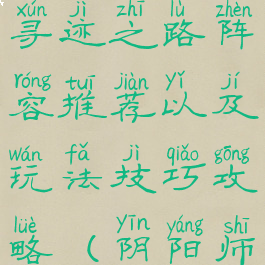 xún jì zhī lù zhèn
寻迹之路阵
róng tuī jiàn yǐ jí
容推荐以及
wán fǎ jì qiǎo gōng
玩法技巧攻
lüè yīn yáng shī
略(阴阳师